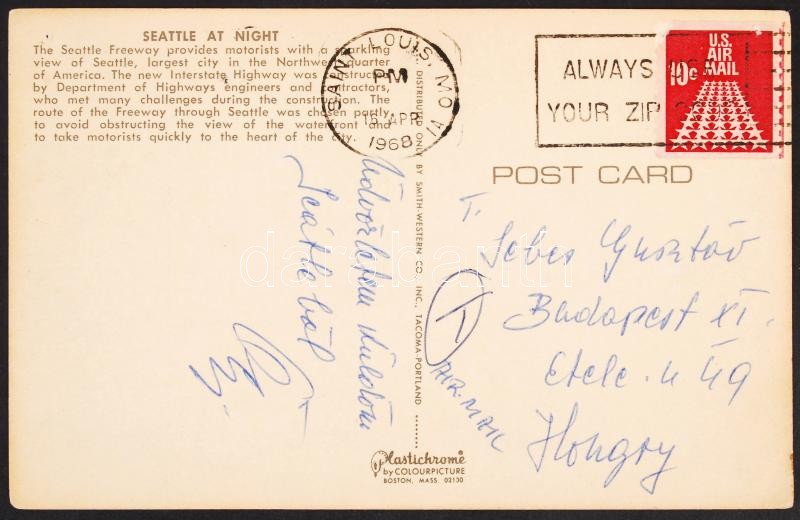 SEATTLE AT NIGHT
The Seattle Freeway provides motorists with a sparkling
view of Seattle, largest city in the Northwest quarter
of America. The new Interstate Highway was constructed
by Department of Highways engineers and contractors,
who met many challenges during the construction. The
route of the Freeway through Seattle was chosen partly
to avoid obstructing the view of the waterfront and
to take motorists quickly to the heart of the city.
SAINT LOUIS, MO
PM
18 APR
1968
1A
ALWAYS USE
YOUR ZIP CODE
U.S.
AIR
MAIL
10c
POST CARD
DISTRIBUTED ONLY BY SMITH-WESTERN CO. INC., TACOMA-PORTLAND
Üdvözletem küldöm
Seattleból
T.
Sebes Gusztáv
Budapest XI.
Etele. u 49
Hongry
T
AIR-MAIL
Plastichrome®
by COLOURPICTURE
BOSTON, MASS. 02130
darabanth